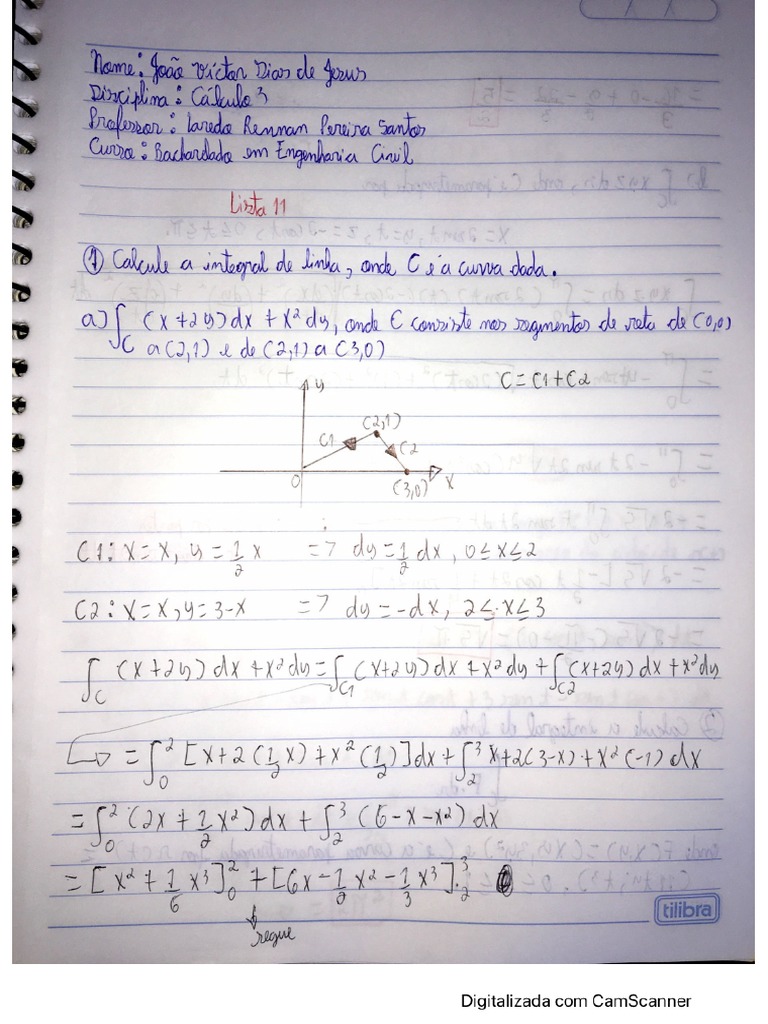 Nome: João Victor Dias de Jesus
Disciplina: Cálculo 3
Professor: Laredo Rennan Pereira Santos
Curso: Bacharelado em Engenharia Civil
Lista 11
① Calcule a integral de linha, onde C é a curva dada.
a) ∫_C (x+2y)dx + x² dy, onde C consiste nos segmentos de reta de (0,0)
a (2,1) e de (2,1) a (3,0)
y
C = C1 + C2
(2,1)
C1
C2
0
(3,0)
x
C1: x=x, y = 1/2 x => dy = 1/2 dx, 0≤x≤2
C2: x=x, y=3-x => dy = -dx, 2≤x≤3
∫_C (x+2y) dx + x² dy = ∫_C1 (x+2y) dx + x² dy + ∫_C2 (x+2y) dx + x² dy
= ∫_0^2 [x+2(1/2 x) + x² (1/2)] dx + ∫_2^3 x+2(3-x) + x² (-1) dx
= ∫_0^2 (2x + 1/2 x²) dx + ∫_2^3 (6-x-x²) dx
= [x² + 1/6 x³]_0^2 + [6x - 1/2 x² - 1/3 x³]_2^3
segue
tilibra
Digitalizada com CamScanner